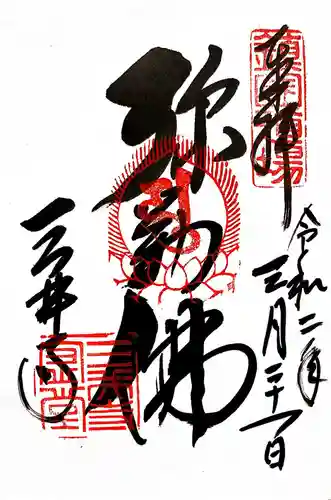 奉拝
令和二年
三月二十一日
弥勒佛
三井寺